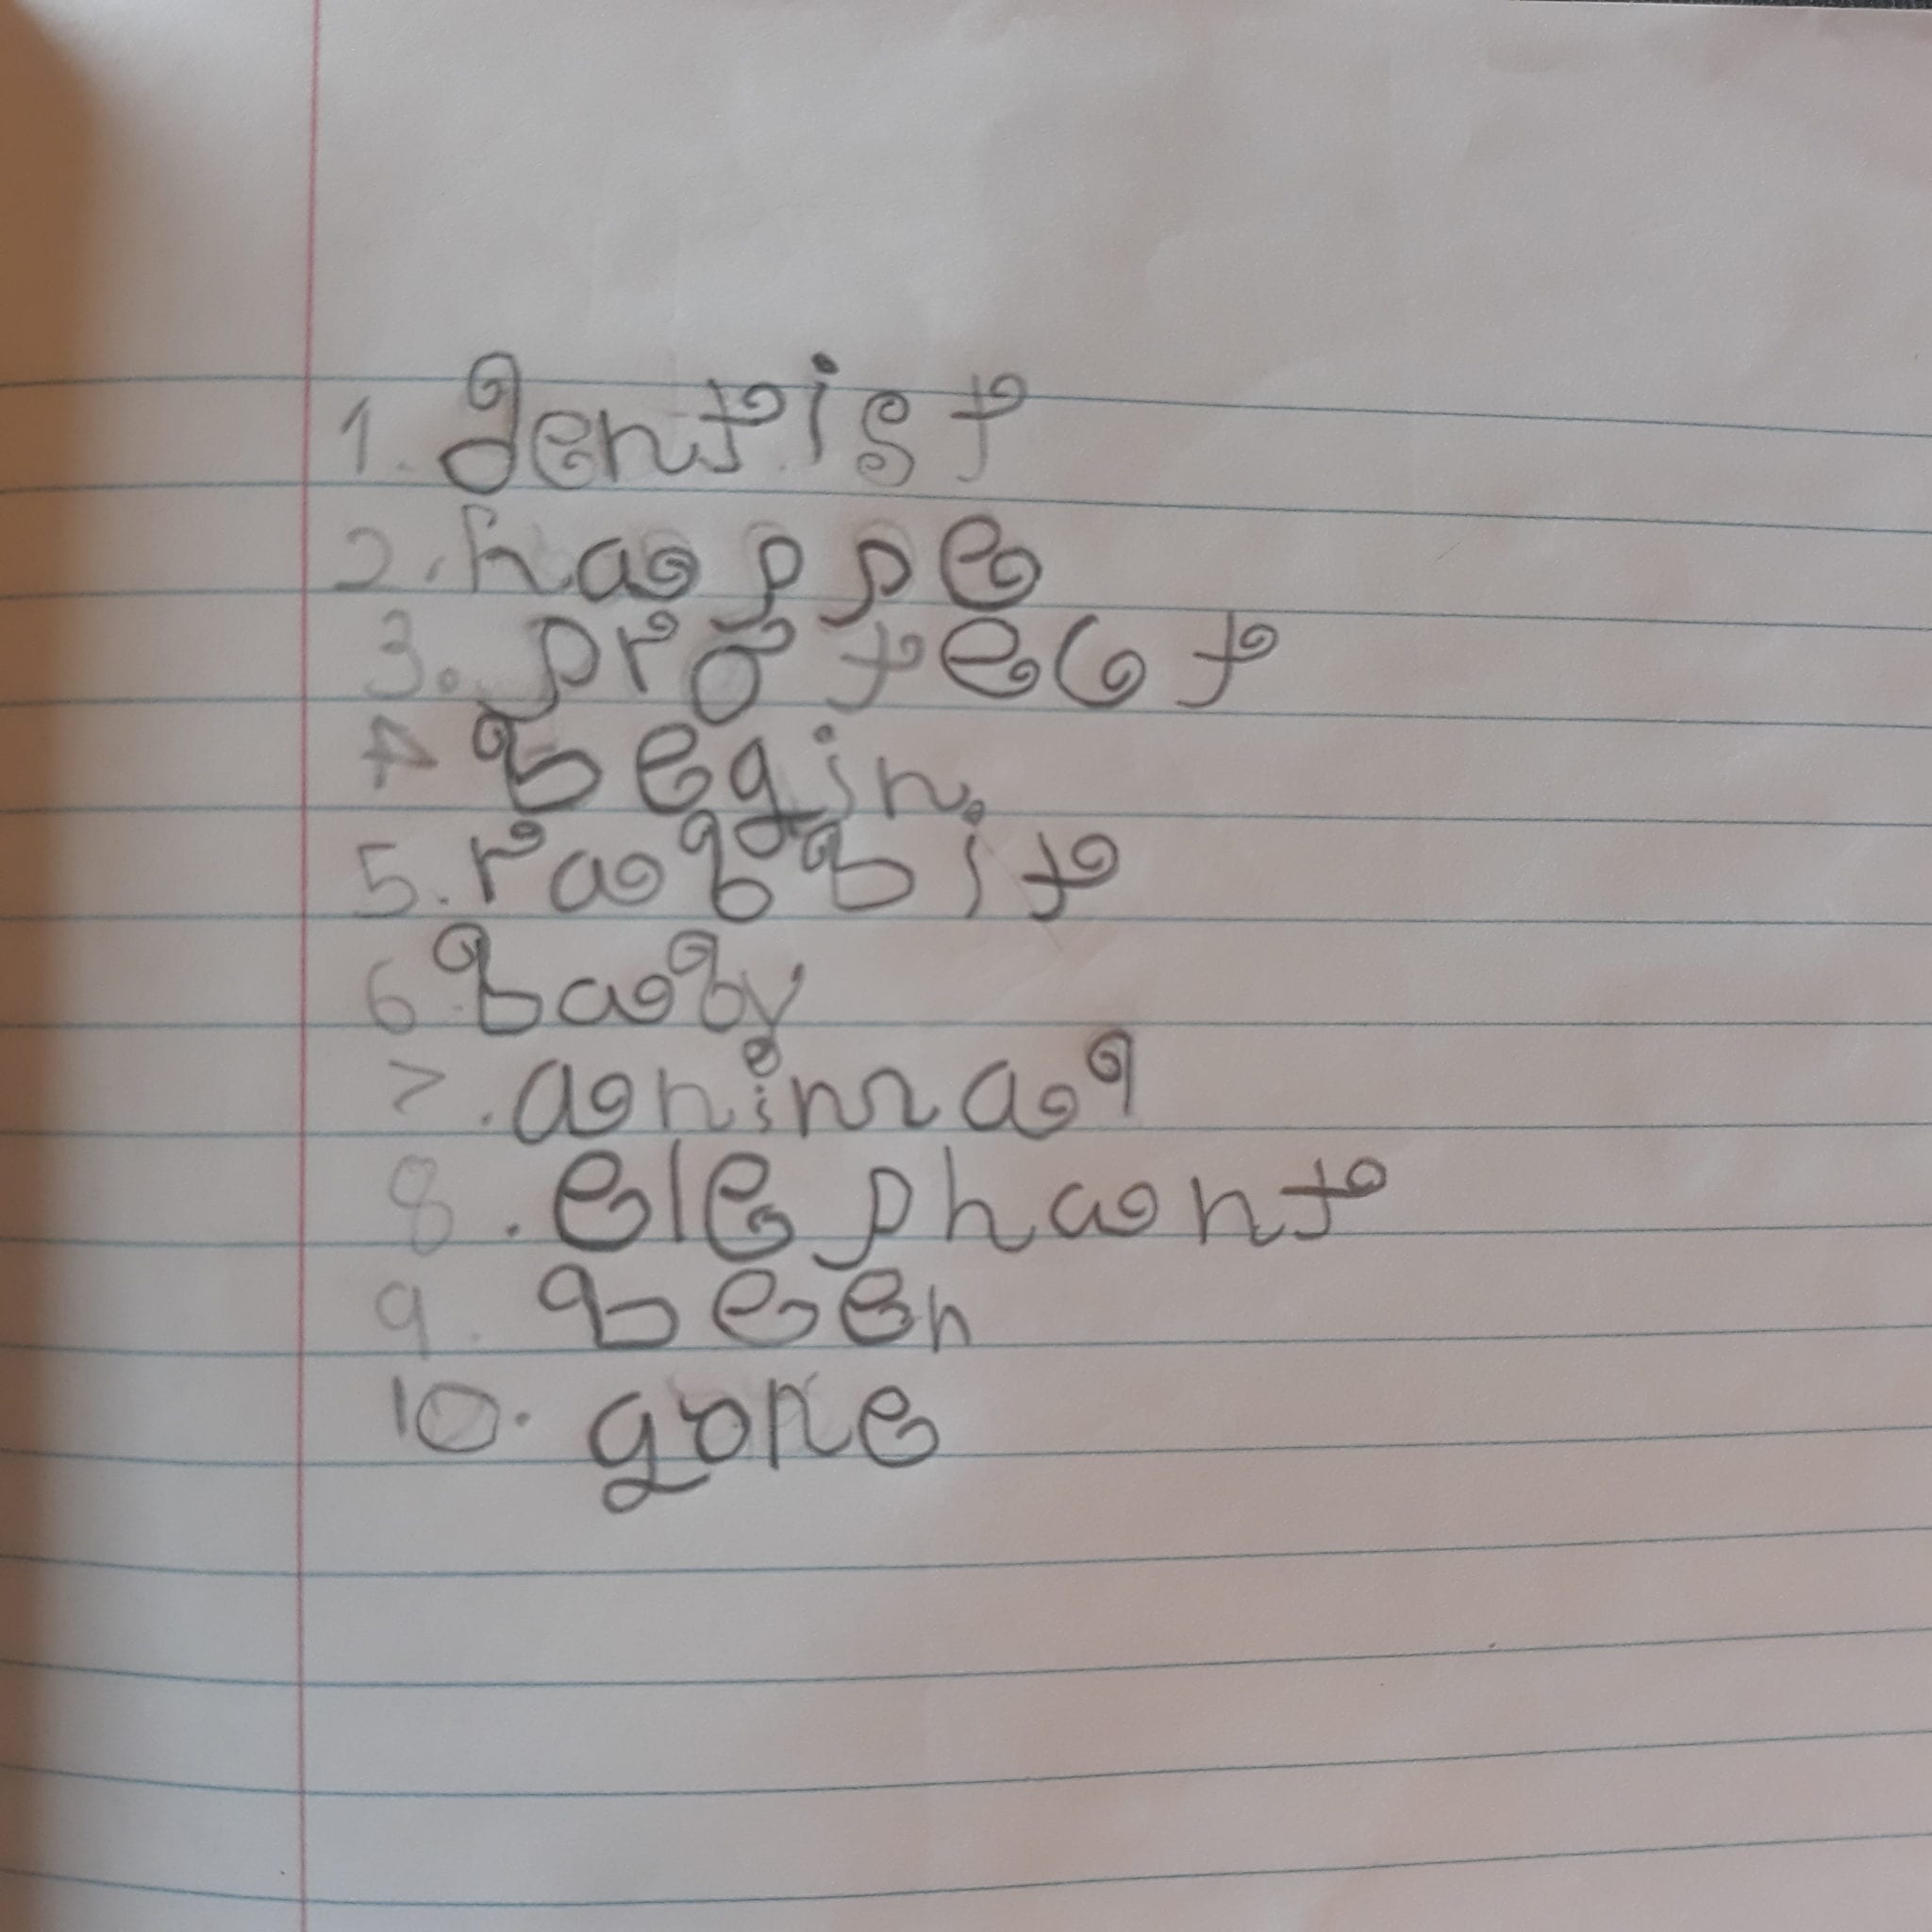 1. dentist
2. happe
3. protect
4 begin.
5. rabbit
6 baby
7. animal
8. elephant
9. been
10. gone